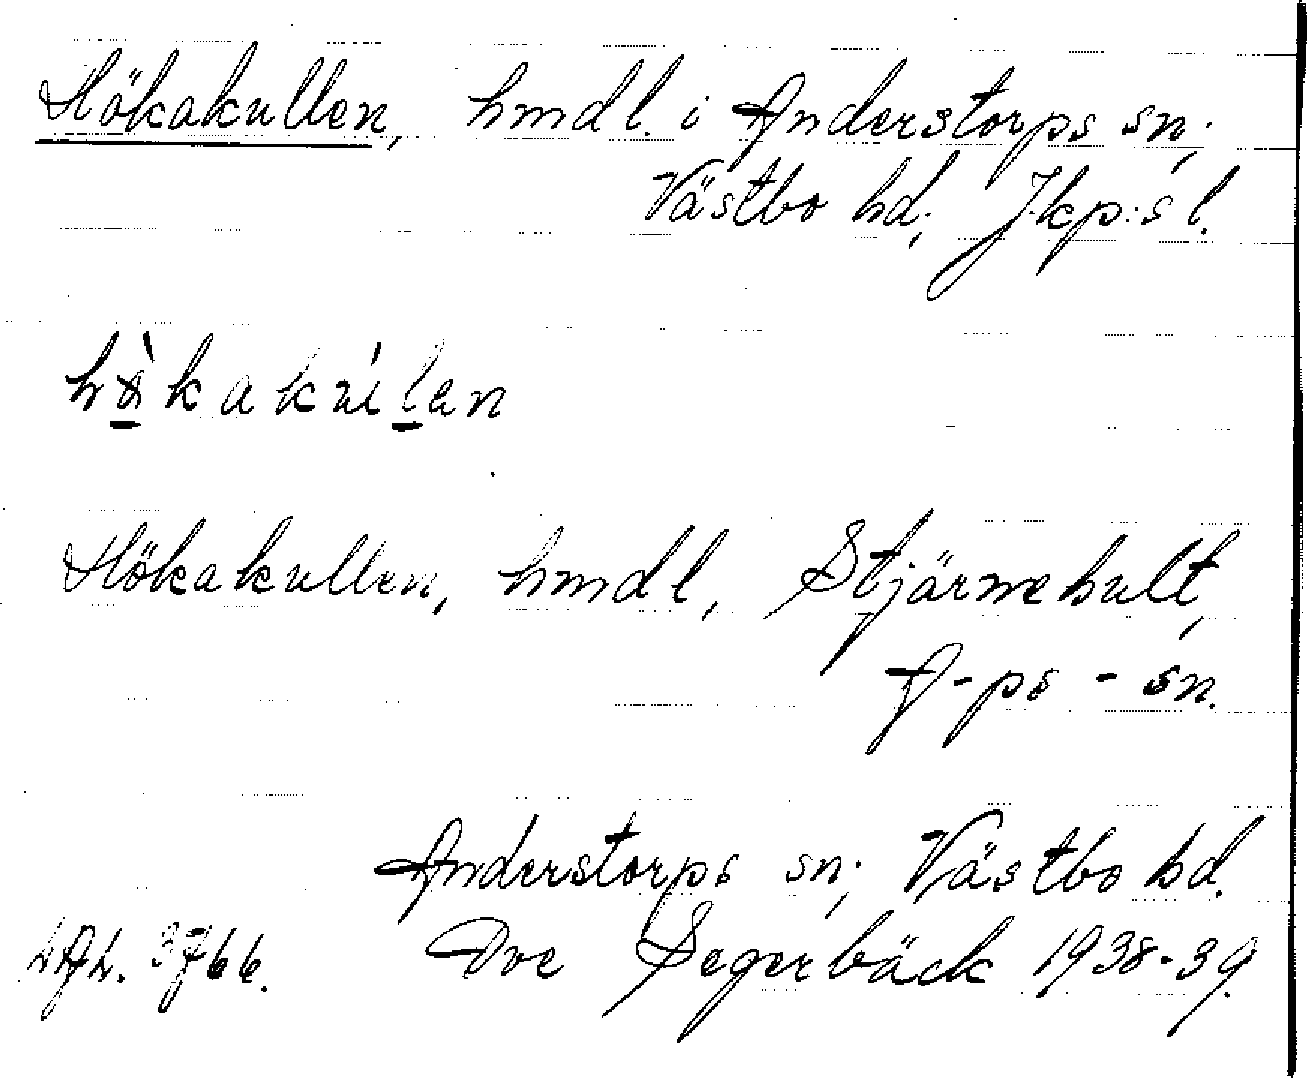 Hökakullen, hmdl. i Anderstorps sn;
Västbo hd; J.kp:s l.
hö̀kakúlen
Hökakullen, hmdl, Stjärnehult,
A-ps-sn.
Anderstorps sn; Västbo hd.
3766. Ove Segerbäck 1938-39.